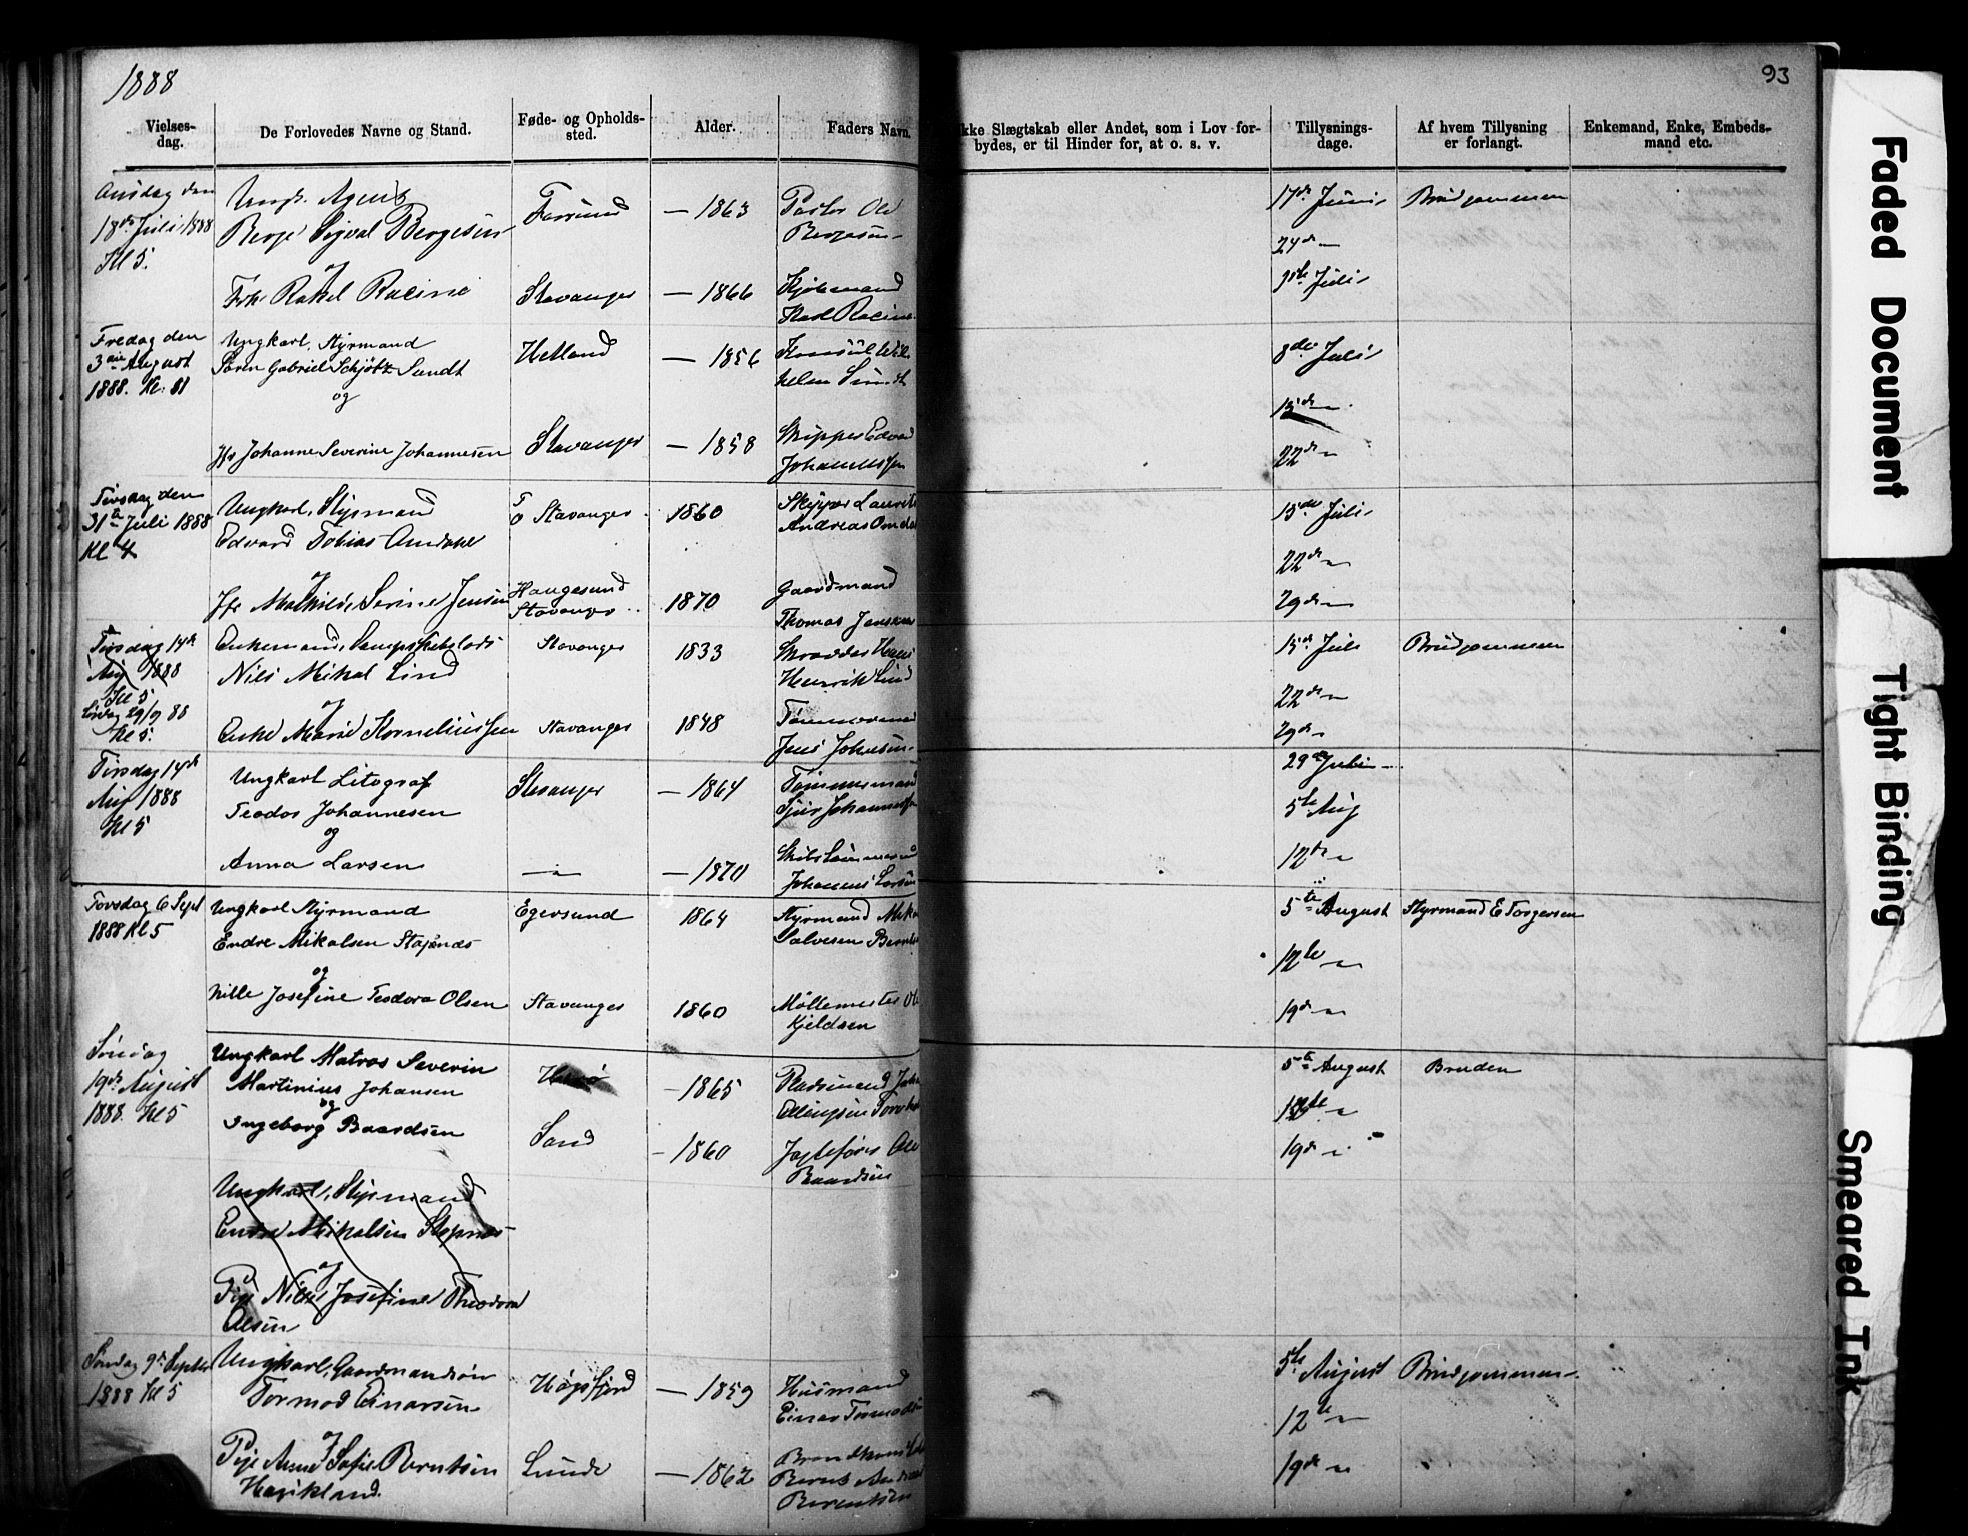 1888
93
Vielses-
dag.
De Forlovedes Navne og Stand.
Føde- og Opholds-
sted.
Alder.
Faders Navn.
kke Slægtskab eller Andet, som i Lov for-
bydes, er til Hinder for, at o. s. v.
Tillysnings-
dage.
Af hvem Tillysning
er forlangt.
Enkemand, Enke, Embeds-
mand etc.
Onsdag den
18de Juli 1888
Kl 5.
Ungk. Agent
Berge Sigval Bergesen
og
Frk. Rakel Racine
Stavanger
— 1863
— 1866
Pastor Ole
Bergesen
Kjøbmand
Karl Racine
17de Juni
24de —
Juli
Brudgommen
Fredag den
3die August
1888. Kl. 11
Ungkarl, Styrmand
Søren Gabriel Schjøtz Sundt
og
Jfr Johanne Severine Johannesen
Hetland
Stavanger
— 1856
— 1858
Konsul Wil
helm Sundt
Skipper Edvard
Johannessen
8de Juli
15de —
22de —
Tirsdag den
31te Juli 1888
Kl 4
Ungkarl, Styrmand
Edvard Tobias Omdahl
og
Jfr Mathilde Serine Jensen
F
O Stavanger
Haugesund
Stavanger
1860
1870
Skipper Laurits
Andreas Omdal
Gaardmand
Thomas Jensen
15de Juli
22de —
29de —
Tirsdag 14de
Aug 1888
Kl 5
Lørdag 29/9 88
Kl 5.
Enkemand,
Nils Mikal Lind
og
Enke Marie Korneliussen
Stavanger
Stavanger
1833
1848
Skrædder Hans
Henrik Lind
Tømmermand
Jens Johnsen
15de Juli
22de —
29de —
Brudgommen
Tirsdag 14de
Aug 1888
Kl 5
Ungkarl Litograf
Teodor Johannesen
og
Anna Larsen
Stavanger
— " —
— 1864
— 1870
Tømmermand
Sjur Johannessen
Skibstømmermand
Johannes Larsen
29de Juli —
5te Aug
12te —
Torsdag 6 Sept
1888 Kl 5
Ungkarl Styrmand
Endre Mikalsen Stapnæs
og
Nille Josefine Teodora Olsen
Egersund
Stavanger
1864
1860
Styrmand Mikal
Salvesen
Møllemester Ole
Kjeldsen
5te August
12te —
19de —
Styrmand E Torgersen
Søndag
19de August
1888. Kl 5
Ungkarl Matros Severin
Martinius Johansen
og
Ingeborg Baardsen
Sand
— 1865
— 1860
Pladsmand John
Jagtefører Ole
Baardsen
5te August
12te —
19de —
Bruden
Ungkarl, Styrmand
Endre Mikalsen Stapnæs
og
Pige Nille Josefine Theodora
Olsen
Søndag 9de Septbr
1888 Kl 5
Ungkarl, Gaardmandssøn
Tormod Einarsen
og
Pige Anne Sofie Berntsen
Haukland.
Høgsfjord
Lunde
— 1859
— 1862
Husmand
Einar Tormodsen
Brandkonstabel
Bernt Andreas
Berentsen
5te August
12te —
19de —
Brudgommen
Faded Document
Tight Binding
Smeared Ink